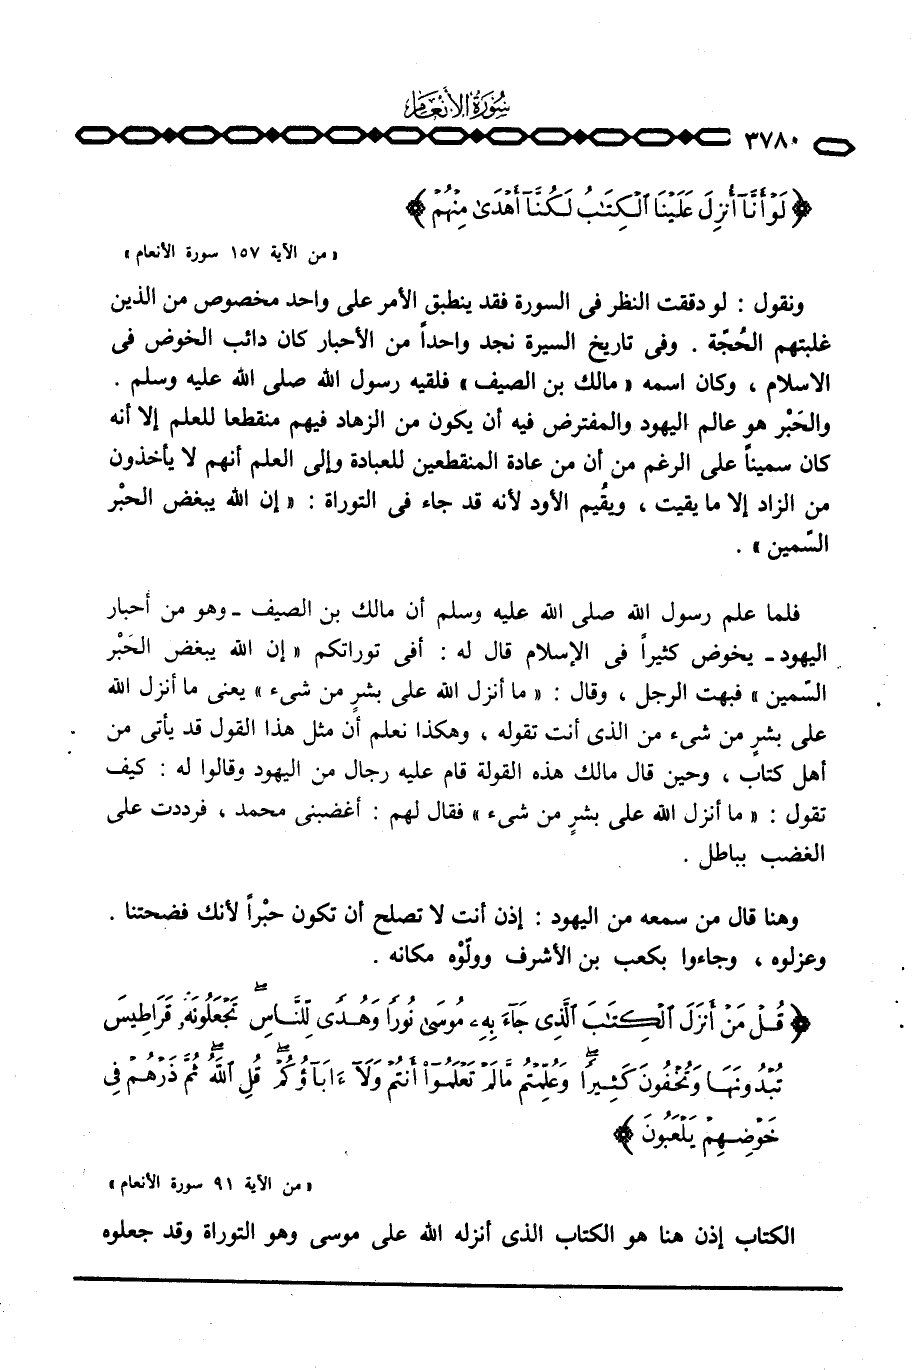 سُورَةُ الأَنْعَام
٣٧٨٠
﴿ لَوْ أَنَّآ أُنزِلَ عَلَيْنَا ٱلْكِتَٰبُ لَكُنَّآ أَهْدَىٰ مِنْهُمْ ﴾
« من الآية ١٥٧ سورة الأنعام »
ونقول : لو دققت النظر فى السورة فقد ينطبق الأمر على واحد مخصوص من الذين
غلبتهم الحُجّة . وفى تاريخ السيرة نجد واحداً من الأحبار كان دائب الخوض فى
الاسلام ، وكان اسمه « مالك بن الصيف » فلقيه رسول الله صلى الله عليه وسلم .
والحَبْر هو عالم اليهود والمفترض فيه أن يكون من الزهاد فيهم منقطعا للعلم إلا أنه
كان سميناً على الرغم من أن من عادة المنقطعين للعبادة وإلى العلم أنهم لا يأخذون
من الزاد إلا ما يقيت ، ويقُيم الأود لأنه قد جاء فى التوراة : « إن الله يبغض الحبْر
السّمين » .
فلما علم رسول الله صلى الله عليه وسلم أن مالك بن الصيف ـ وهو من أحبار
اليهود ـ يخوض كثيراً فى الإسلام قال له : أفى توراتكم « إن الله يبغض الحَبْر
السّمين » فبهت الرجل ، وقال : « ما أنزل الله على بشرٍ من شىء » يعنى ما أنزل الله
على بشرٍ من شىء من الذى أنت تقوله ، وهكذا نعلم أن مثل هذا القول قد يأتى من
أهل كتاب ، وحين قال مالك هذه القولة قام عليه رجال من اليهود وقالوا له : كيف
تقول : « ما أنزل الله على بشرٍ من شىء » فقال لهم : أغضبنى محمد ، فرددت على
الغضب بباطل .
وهنا قال من سمعه من اليهود : إذن أنت لا تصلح أن تكون حبْراً لأنك فضحتنا .
وعزلوه ، وجاءوا بكعب بن الأشرف وولّوْه مكانه .
﴿ قُلْ مَنْ أَنزَلَ ٱلْكِتَٰبَ ٱلَّذِى جَآءَ بِهِۦ مُوسَىٰ نُورًا وَهُدًى لِّلنَّاسِ ۖ تَجْعَلُونَهُۥ قَرَاطِيسَ
تُبْدُونَهَا وَتُخْفُونَ كَثِيرًا ۖ وَعُلِّمْتُم مَّا لَمْ تَعْلَمُوٓا۟ أَنتُمْ وَلَآ ءَابَآؤُكُمْ ۖ قُلِ ٱللَّهُ ۖ ثُمَّ ذَرْهُمْ فِى
خَوْضِهِمْ يَلْعَبُونَ ﴾
« من الآية ٩١ سورة الأنعام »
الكتاب إذن هنا هو الكتاب الذى أنزله الله على موسى وهو التوراة وقد جعلوه